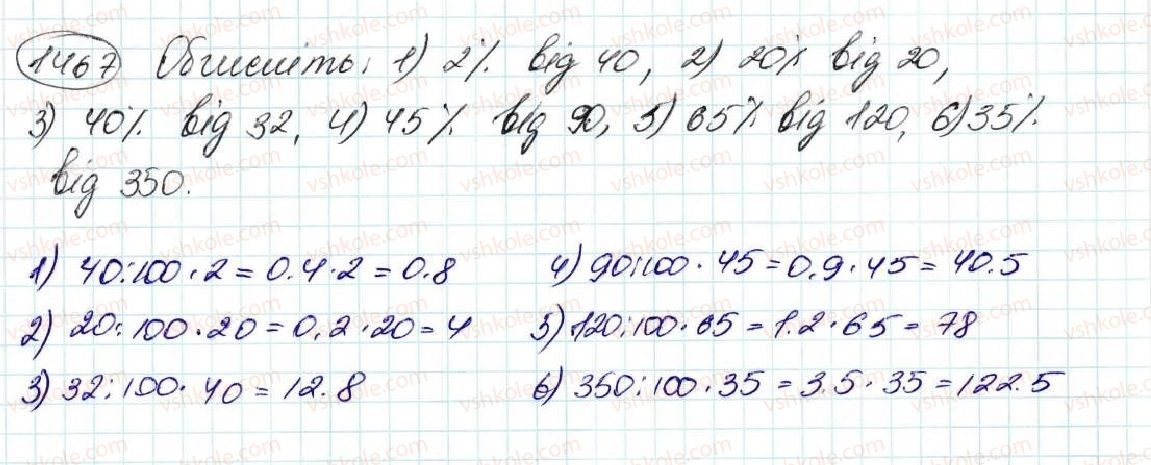 1467 Обчисліть: 1) 2% від 40, 2) 20% від 20,
3) 40% від 32, 4) 45% від 90, 5) 65% від 120, 6) 35%
від 350.
1) 40:100·2=0.4·2=0.8
4) 90:100·45=0.9·45=40.5
2) 20:100·20=0,2·20=4
5) 120:100·65=1.2·65=78
3) 32:100·40=12.8
6) 350:100·35=3.5·35=122.5
vshkole.com